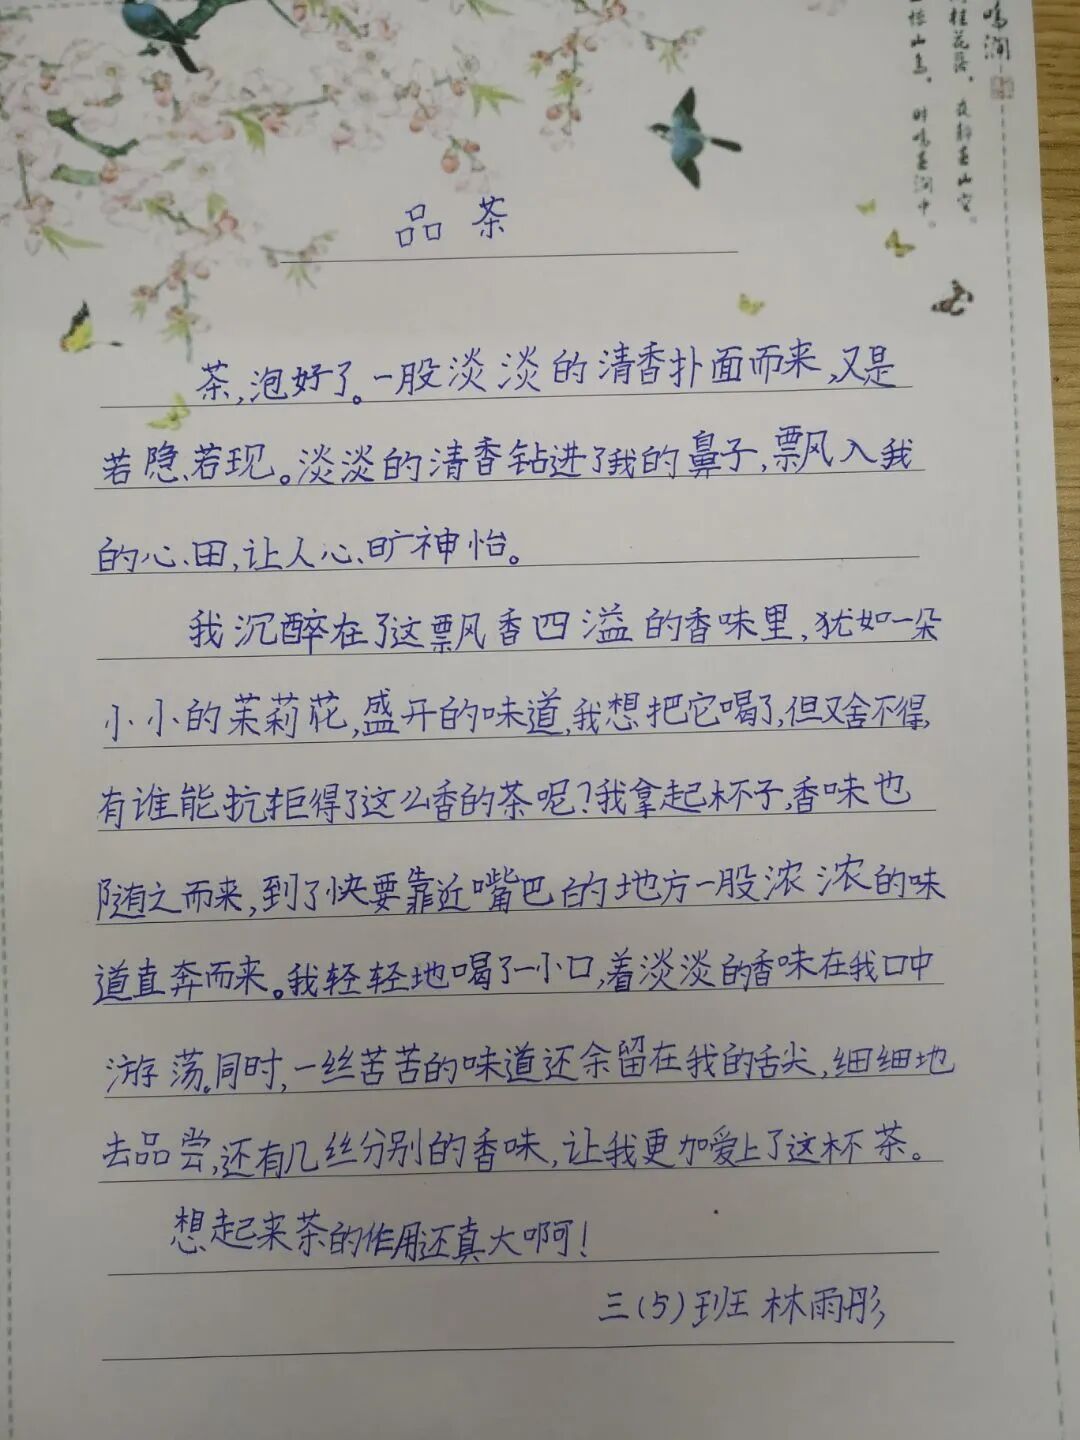 鸣涧
桂花落，夜静春山空。
山鸟，时鸣春涧中。
品茶
茶，泡好了。一股淡淡的清香扑面而来，又是
若隐若现。淡淡的清香钻进了我的鼻子，飘风入我
的心田，让人心旷神怡。
我沉醉在了这飘香四溢的香味里，犹如一朵
小小的茉莉花，盛开的味道，我想把它喝了，但又舍不得，
有谁能抗拒得了这么香的茶呢？我拿起杯子，香味也
随之而来，到了快要靠近嘴巴的地方一股浓浓的味
道直奔而来。我轻轻地喝了一小口，着淡淡的香味在我口中
游荡。同时，一丝苦苦的味道还余留在我的舌尖，细细地
去品尝，还有几丝分别的香味，让我更加爱上了这杯茶。
想起来茶的作用还真大啊！
三（5）班 林雨彤